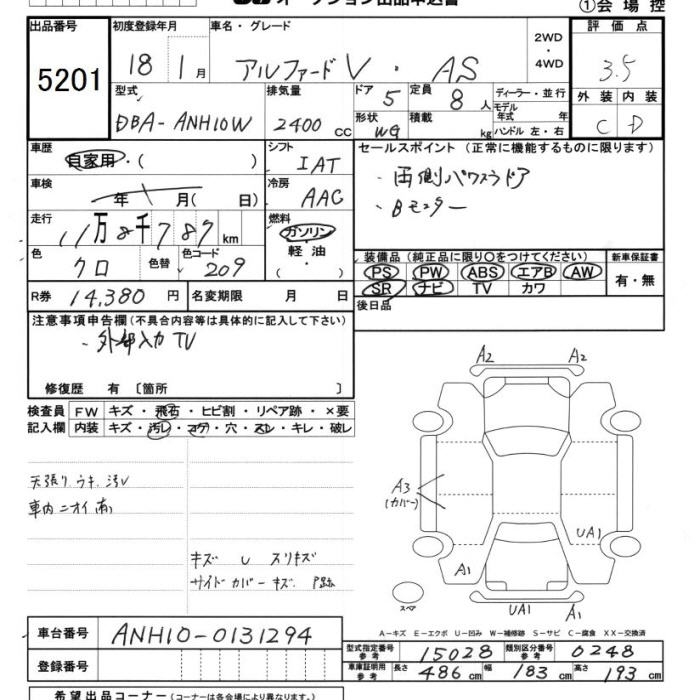 オークション出品申込書
①会場控
出品番号 初度登録年月 車名・グレード 2WD・4WD 評価点
5201 18 1月 アルファードV・AS 3.5
型式 排気量 ドア 5 定員 8人 ディーラー・並行 外装 内装
DBA-ANH10W 2400cc 形状 WG 積載 kg モデル年式 年 C D
ハンドル 左・右
車歴 シフト セールスポイント (正常に機能するものに限ります)
自家用・( ) IAT
車検 冷房 ・両側パワスラドア
年 月( 日) AAC ・Bモニター
走行 燃料
11万8千787km ガソリン 装備品 (純正品に限り○をつけてください) 新車保証書
色 色替 色コード 軽油 PS PW ABS エアB AW 有・無
クロ 209 ・( ) SR ナビ TV カワ
R券 14,380円 名変期限 月 日 後日品
注意事項申告欄 (不具合内容等は具体的に記入して下さい)
・外部入力TV
修復歴 有 〔箇所 〕
検査員 FW キズ・飛石・ヒビ割・リペア跡・×要
記入欄 内装 キズ・汚レ・コゲ・穴・スレ・キレ・破レ
A2 A2
天張リ ウキ、汚レ
車内ニオイ有
A3
(カバー)
UA1
キズ U スリキズ
A1
サイドカバーキズ P跡
スペア
UA1 A1
A-キズ E-エクボ U-凹み W-補修跡 S-サビ C-腐食 XX-交換済
車台番号 ANH10-0131294
型式指定番号 参考 15028 類別区分番号 参考 0248
登録番号 車庫証明用 参考 長さ 486cm 幅 183cm 高さ 193cm
希望出品コーナー (コーナーは各会場により異なります。)